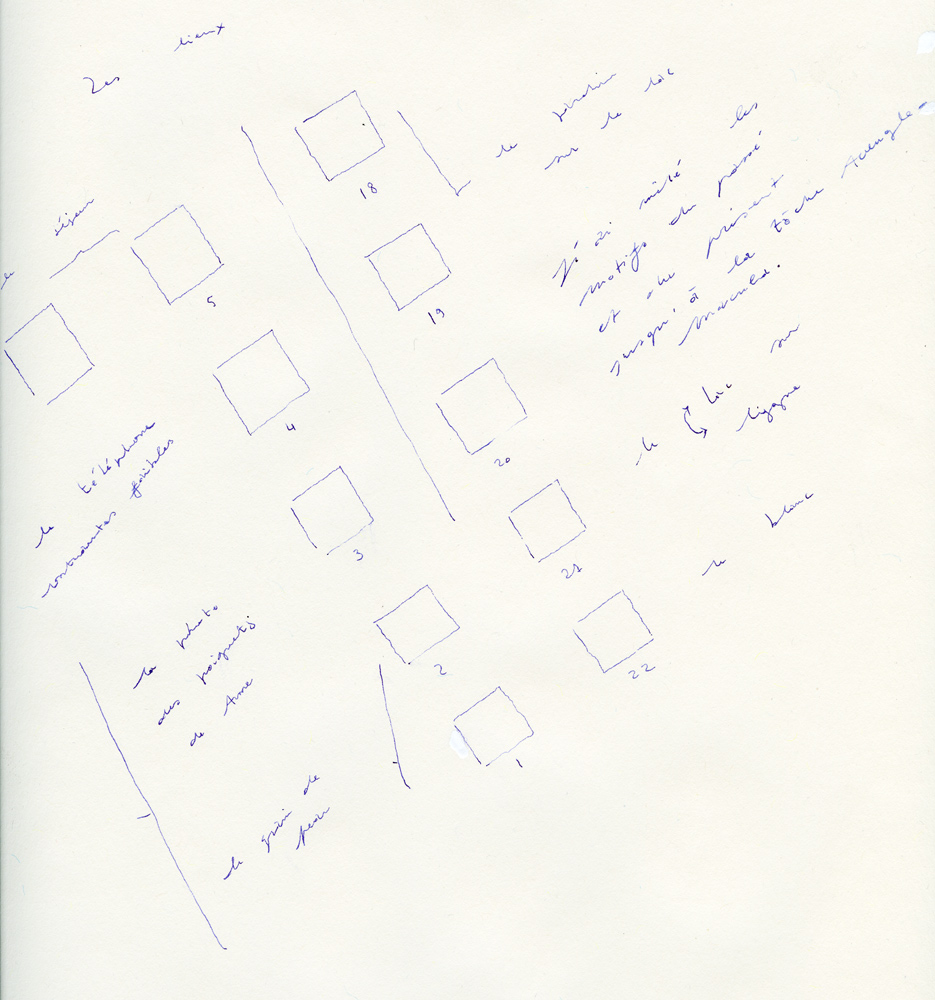 Les lieux
le séjour
le jardin
sur le lac
18
5
19
4
20
3
21
2
22
1
j'ai mêlé les
motifs du passé
et du présent
jusqu'à la tâche Aveugle-
macula.
le lac sur
ligne
le blanc
le téléphone
contraintes faibles
la photo
des poignets
de Anne
le grain de
peau